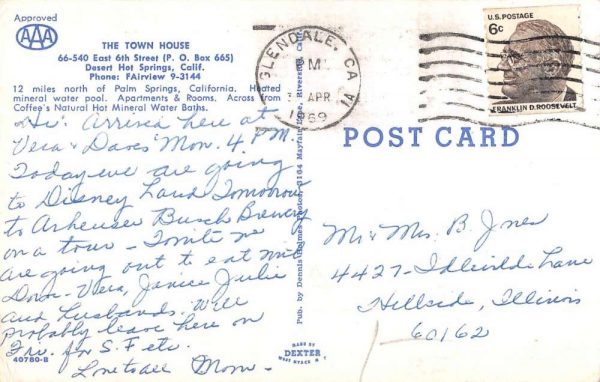 Approved
AAA
THE TOWN HOUSE
66-540 East 6th Street (P. O. Box 665)
Desert Hot Springs, Calif.
Phone: FAirview 9-3144
12 miles north of Palm Springs, California. Heated
mineral water pool. Apartments & Rooms. Across from
Coffee's Natural Hot Mineral Water Baths.
Hi: Arrived here at
Vera & Daves Mon. 4 P.M.
Today we are going
to Disney Land Tomorrow
to Anheuser Busch Brewery
on a tour - Tonite we
are going out to eat with
Dave - Vera, Janice Julie
and husbands. Will
probably leave here on
for S.F. etc.
Love to all Mom -
40780-B
Pub. by Dennis
MADE BY
DEXTER
WEST NYACK N.Y.
GLENDALE, CA
PM
APR
1969
U.S. POSTAGE
6c
FRANKLIN D. ROOSEVELT
POST CARD
Mr & Mrs. B. Jones
4427- Idlewilde Lane
Hillside, Illinois
60162